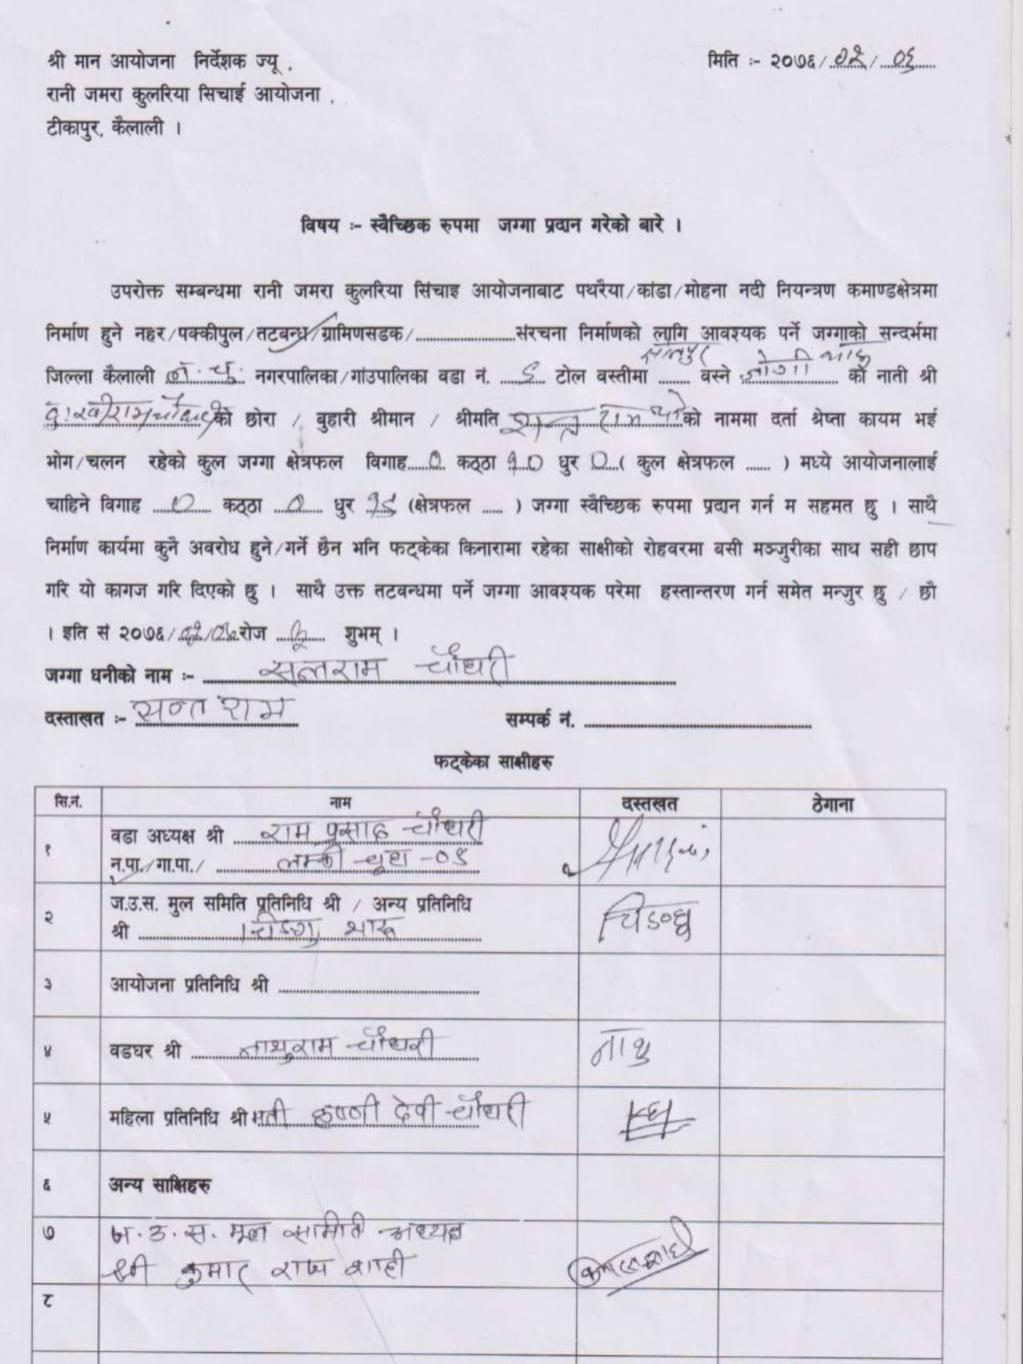 श्री मान आयोजना निर्देशक ज्यू ,
मिति :- २०७६/०२/०६
रानी जमरा कुलरिया सिचाई आयोजना ,
टीकापुर, कैलाली ।
विषय :- स्वैच्छिक रुपमा जग्गा प्रदान गरेको बारे ।
उपरोक्त सम्बन्धमा रानी जमरा कुलरिया सिंचाइ आयोजनाबाट पथरैया/कांडा/मोहना नदी नियन्त्रण कमाण्डक्षेत्रमा
निर्माण हुने नहर/पक्कीपुल/तटबन्ध/ग्रामिणसडक/.........................संरचना निर्माणको लागि आवश्यक पर्ने जग्गाको सन्दर्भमा
जिल्ला कैलाली ल. चु. नगरपालिका/गांउपालिका वडा नं. टोल वस्तीमा ........ वस्ने को नाती श्री
को छोरा / बुहारी श्रीमान / श्रीमति को नाममा दर्ता श्रेष्ता कायम भई
भोग/चलन रहेको कुल जग्गा क्षेत्रफल विगाह ०. कठ्ठा १० धुर ०.( कुल क्षेत्रफल ...... ) मध्ये आयोजनालाई
चाहिने विगाह ० कठ्ठा ० धुर (क्षेत्रफल ..... ) जग्गा स्वैच्छिक रुपमा प्रदान गर्न म सहमत छु । साथै
निर्माण कार्यमा कुनै अवरोध हुने/गर्ने छैन भनि फट्केका किनारामा रहेका साक्षीको रोहवरमा बसी मञ्जुरीका साथ सही छाप
गरि यो कागज गरि दिएको छु । साथै उक्त तटबन्धमा पर्ने जग्गा आवश्यक परेमा हस्तान्तरण गर्न समेत मन्जुर छु / छौ
। इति सं २०७६/०२/०६ रोज शुभम् ।
जग्गा धनीको नाम :- सन्तराम चौधरी
दस्ताखत :- सन्त राम
सम्पर्क नं. ..............................
फट्केका साक्षीहरु
सि.नं. नाम दस्तखत ठेगाना
१ वडा अध्यक्ष श्री राम प्रसाद चौधरी
न.पा./गा.पा./ लम्की चुहा -०९
२ ज.उ.स. मुल समिति प्रतिनिधि श्री / अन्य प्रतिनिधि
श्री
३ आयोजना प्रतिनिधि श्री ..............................
४ वडघर श्री नाथुराम चौधरी नाथु
५ महिला प्रतिनिधि श्री मती कृष्णी देवी चौधरी
६ अन्य साक्षिहरु
७ ज. उ. स. मूल समिति अध्यक्ष
श्री कुमार राज शाही
८